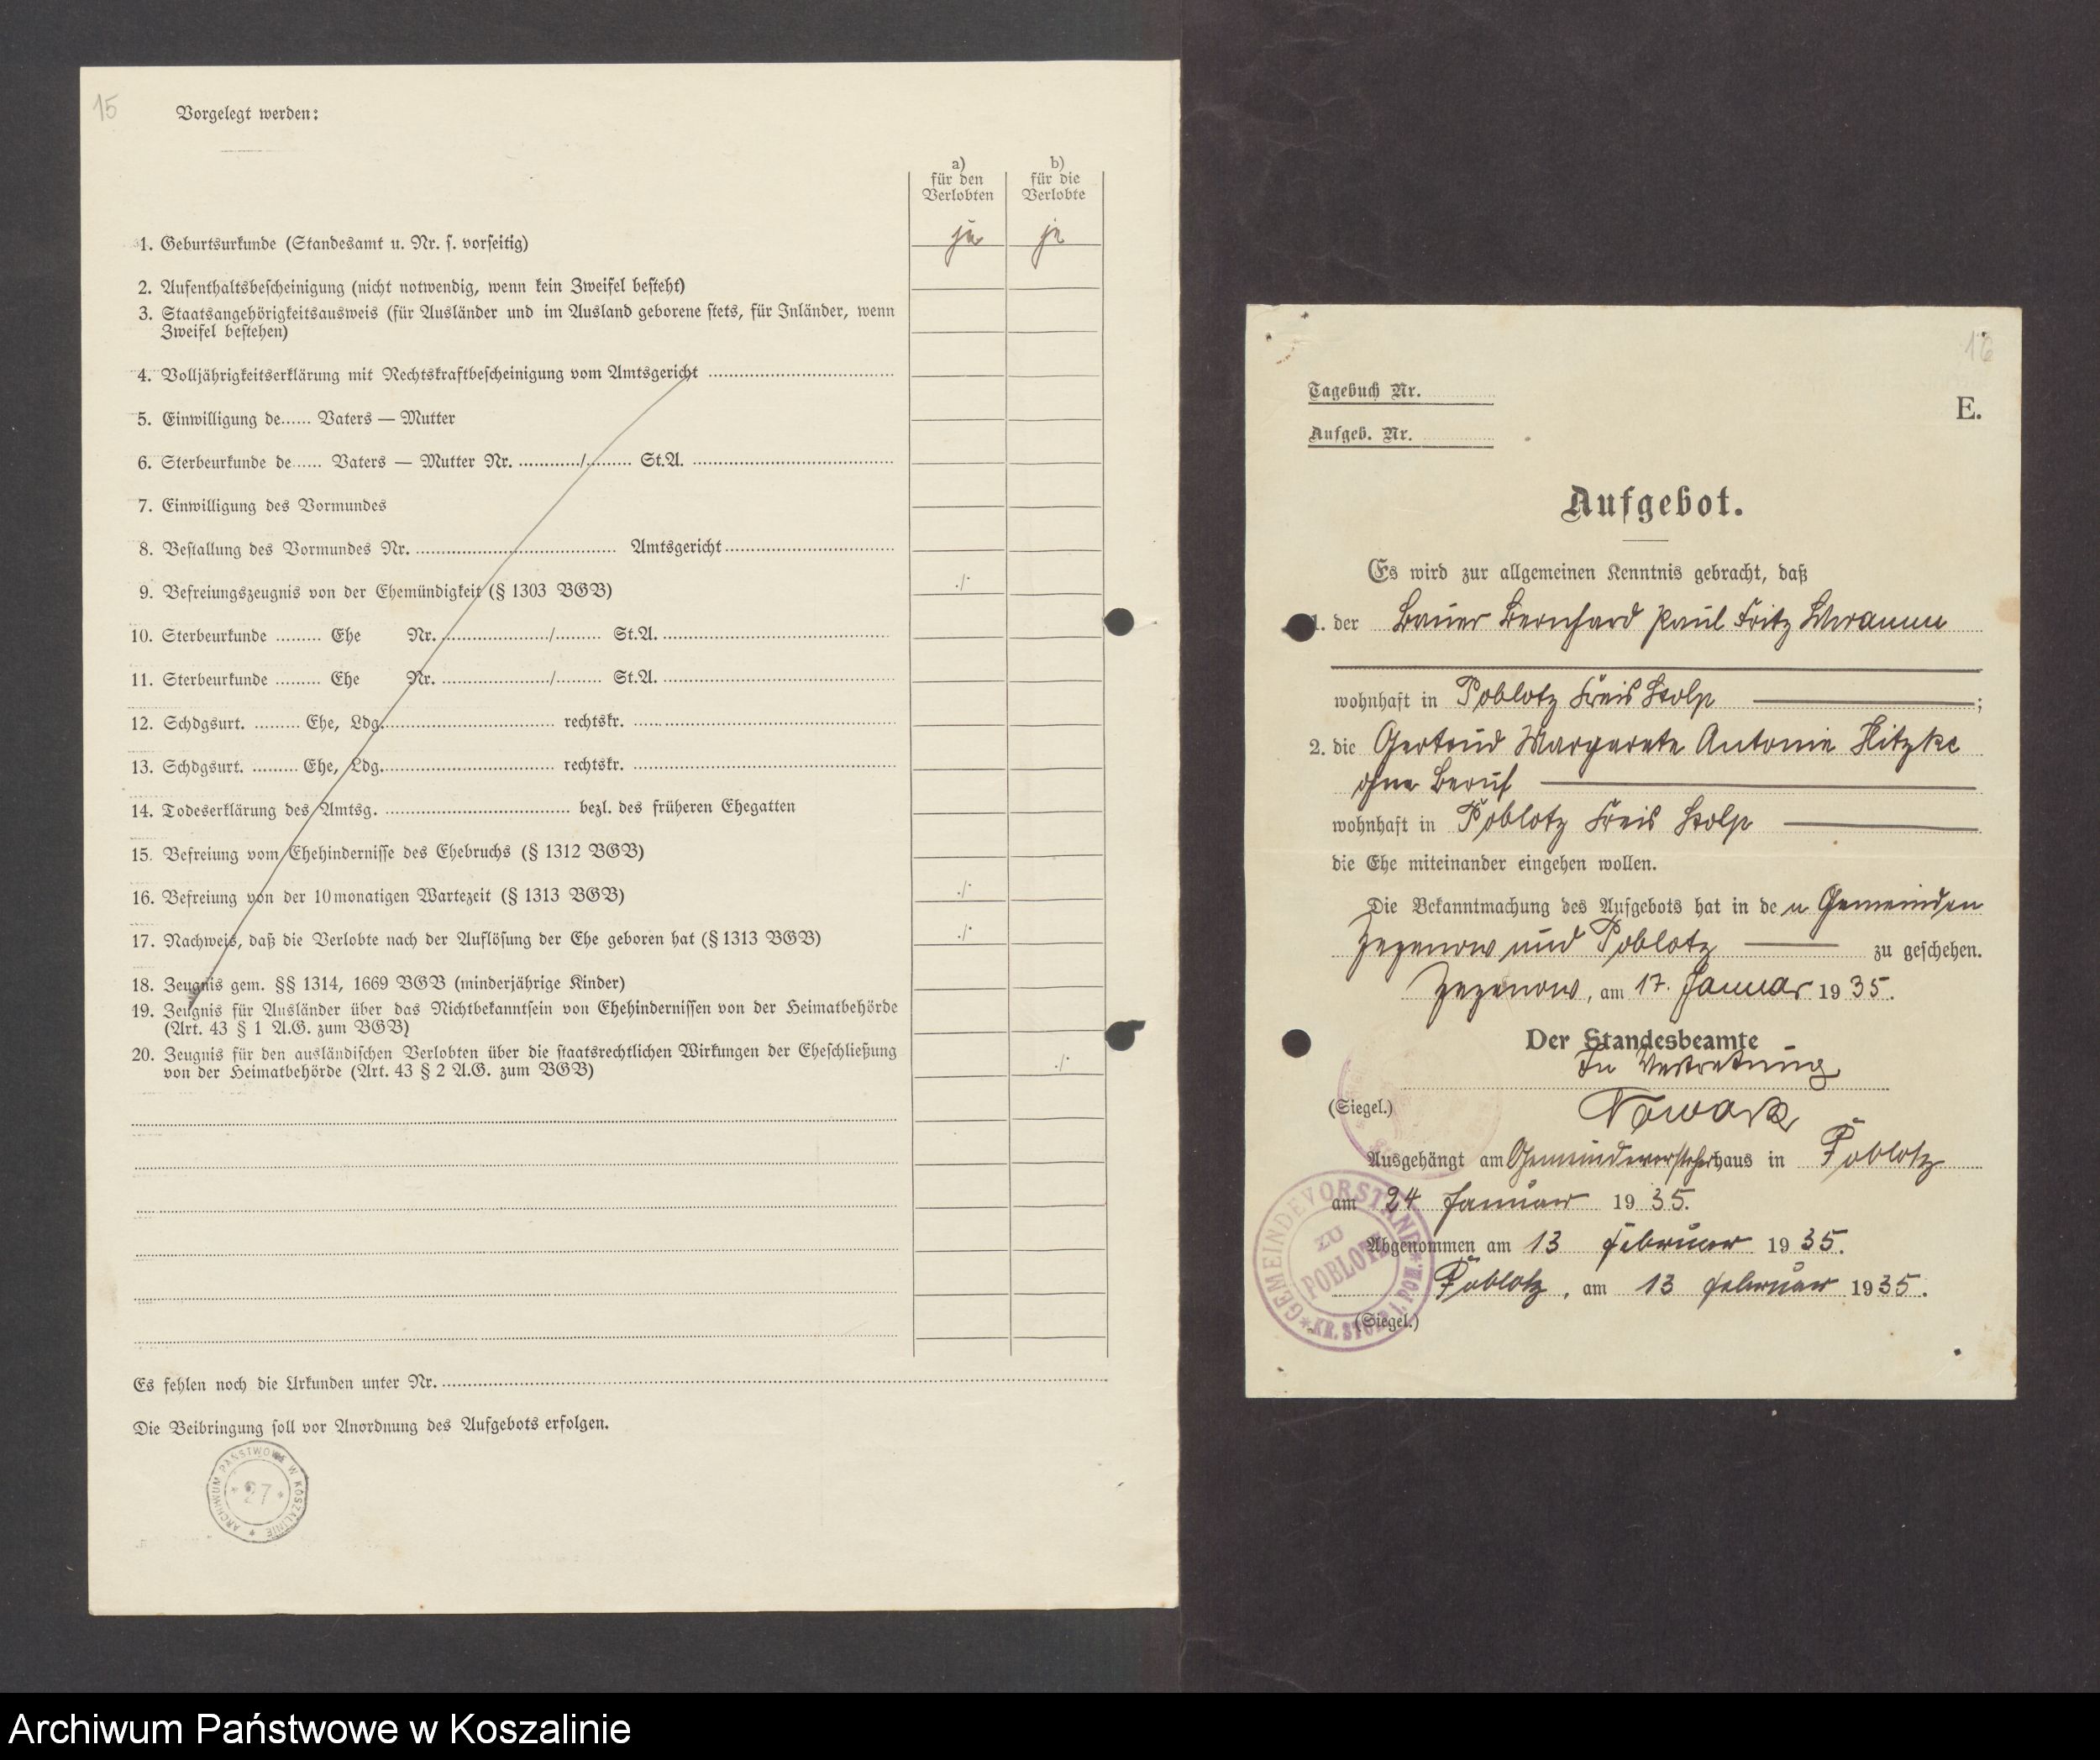 15
Vorgelegt werden:
a)
für den
Verlobten
b)
für die
Verlobte
1. Geburtsurkunde (Standesamt u. Nr. s. vorseitig) ja ja
2. Aufenthaltsbescheinigung (nicht notwendig, wenn kein Zweifel besteht)
3. Staatsangehörigkeitsausweis (für Ausländer und im Ausland geborene stets, für Inländer, wenn
Zweifel bestehen)
4. Volljährigkeitserklärung mit Rechtskraftbescheinigung vom Amtsgericht
5. Einwilligung de...... Vaters — Mutter
6. Sterbeurkunde de...... Vaters — Mutter Nr. ............/......... St.A.
7. Einwilligung des Vormundes
8. Bestallung des Vormundes Nr. ............ Amtsgericht
9. Befreiungszeugnis von der Ehemündigkeit (§ 1303 BGB) ./.
10. Sterbeurkunde ......... Ehe Nr. ............/......... St.A.
11. Sterbeurkunde ......... Ehe Nr. ............/......... St.A.
12. Schdgsurt. ......... Ehe, Ldg. ............ rechtskr.
13. Schdgsurt. ......... Ehe, Ldg. ............ rechtskr.
14. Todeserklärung des Amtsg. ............ bezl. des früheren Ehegatten
15. Befreiung vom Ehehindernisse des Ehebruchs (§ 1312 BGB)
16. Befreiung von der 10monatigen Wartezeit (§ 1313 BGB) ./.
17. Nachweis, daß die Verlobte nach der Auflösung der Ehe geboren hat (§ 1313 BGB) ./.
18. Zeugnis gem. §§ 1314, 1669 BGB (minderjährige Kinder)
19. Zeugnis für Ausländer über das Nichtbekanntsein von Ehehindernissen von der Heimatbehörde
(Art. 43 § 1 A.G. zum BGB)
20. Zeugnis für den ausländischen Verlobten über die staatsrechtlichen Wirkungen der Eheschließung
von der Heimatbehörde (Art. 43 § 2 A.G. zum BGB) ./.
Es fehlen noch die Urkunden unter Nr.
Die Beibringung soll vor Anordnung des Aufgebots erfolgen.
ARCHIWUM PAŃSTWOWE W KOSZALINIE
* 27 *
16
Tagebuch Nr.
E.
Aufgeb. Nr.
Aufgebot.
Es wird zur allgemeinen Kenntnis gebracht, daß
1. der Bauer Bernhard Paul Fritz Schramm
wohnhaft in Poblotz Kreis Stolp ;
2. die Gertrud Margarete Antonie Hitzke
ohne Beruf
wohnhaft in Poblotz Kreis Stolp
die Ehe miteinander eingehen wollen.
Die Bekanntmachung des Aufgebots hat in den Gemeinden
Zezenow und Poblotz zu geschehen.
Zezenow, am 17. Januar 1935.
Der Standesbeamte
In Vertretung
(Siegel.) Nowack
Ausgehängt am Gemeindevorsteherhaus in Poblotz
am 24 Januar 1935.
Abgenommen am 13 Februar 1935.
Poblotz, am 13 Februar 1935.
(Siegel.)
GEMEINDEVORSTAND * KR. STOLP i. POM. *
ZU
POBLOTZ
Archiwum Państwowe w Koszalinie